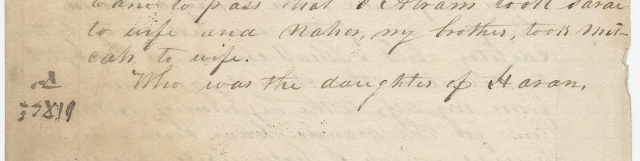 came to pass that I Abram took Sarai
to wife and Nahor, my brother, took Mil-
cah to wife.
Who was the daughter of Haran.